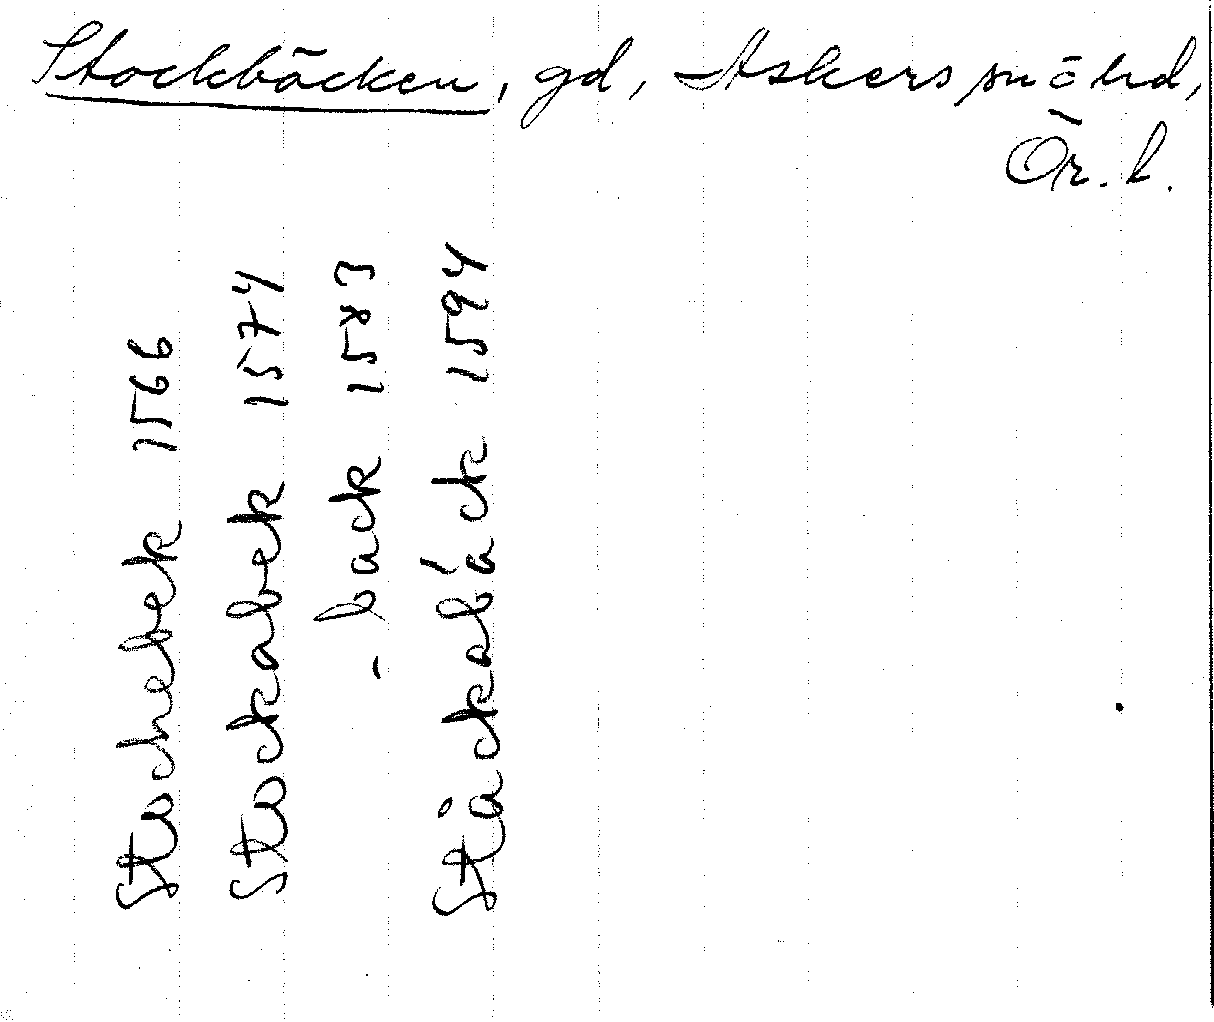 Stockbäcken, gd, Askers sn ō hd,
Ör. l.
Stochebek 1566
Stockabek 1574
- back 1583
Ståckabäck 1594